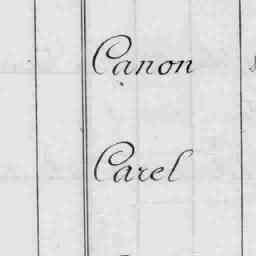 Canon
Carel